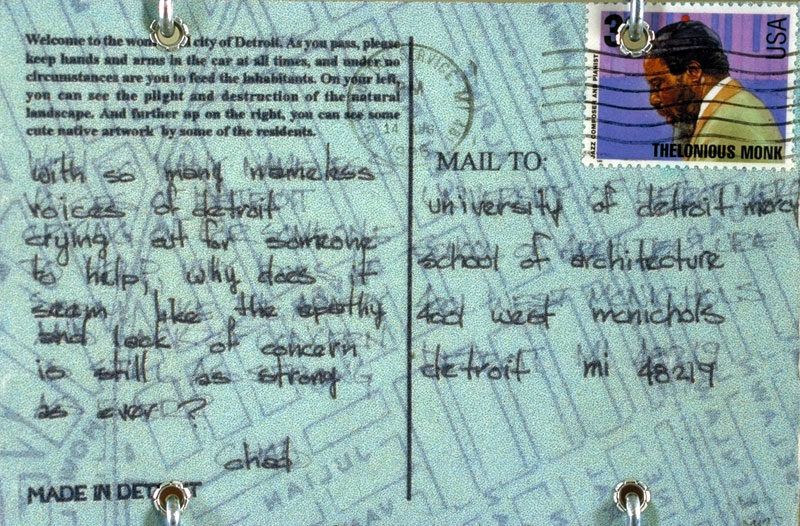 Welcome to the won city of Detroit. As you pass, please
keep hands and arms in the car at all times, and under no
circumstances are you to feed the inhabitants. On your left,
you can see the plight and destruction of the natural
landscape. And further up on the right, you can see some
cute native artwork by some of the residents.
with so many nameless
voices of detroit
crying out for someone
to help, why does it
seem like the apathy
and lack of concern
is still as strong
as ever?
chad
MADE IN DET T
14
3
USA
JAZZ COMPOSER AND PIANIST
THELONIOUS MONK
MAIL TO:
university of detroit mercy
school of architecture
4001 west mcnichols
detroit mi 48219